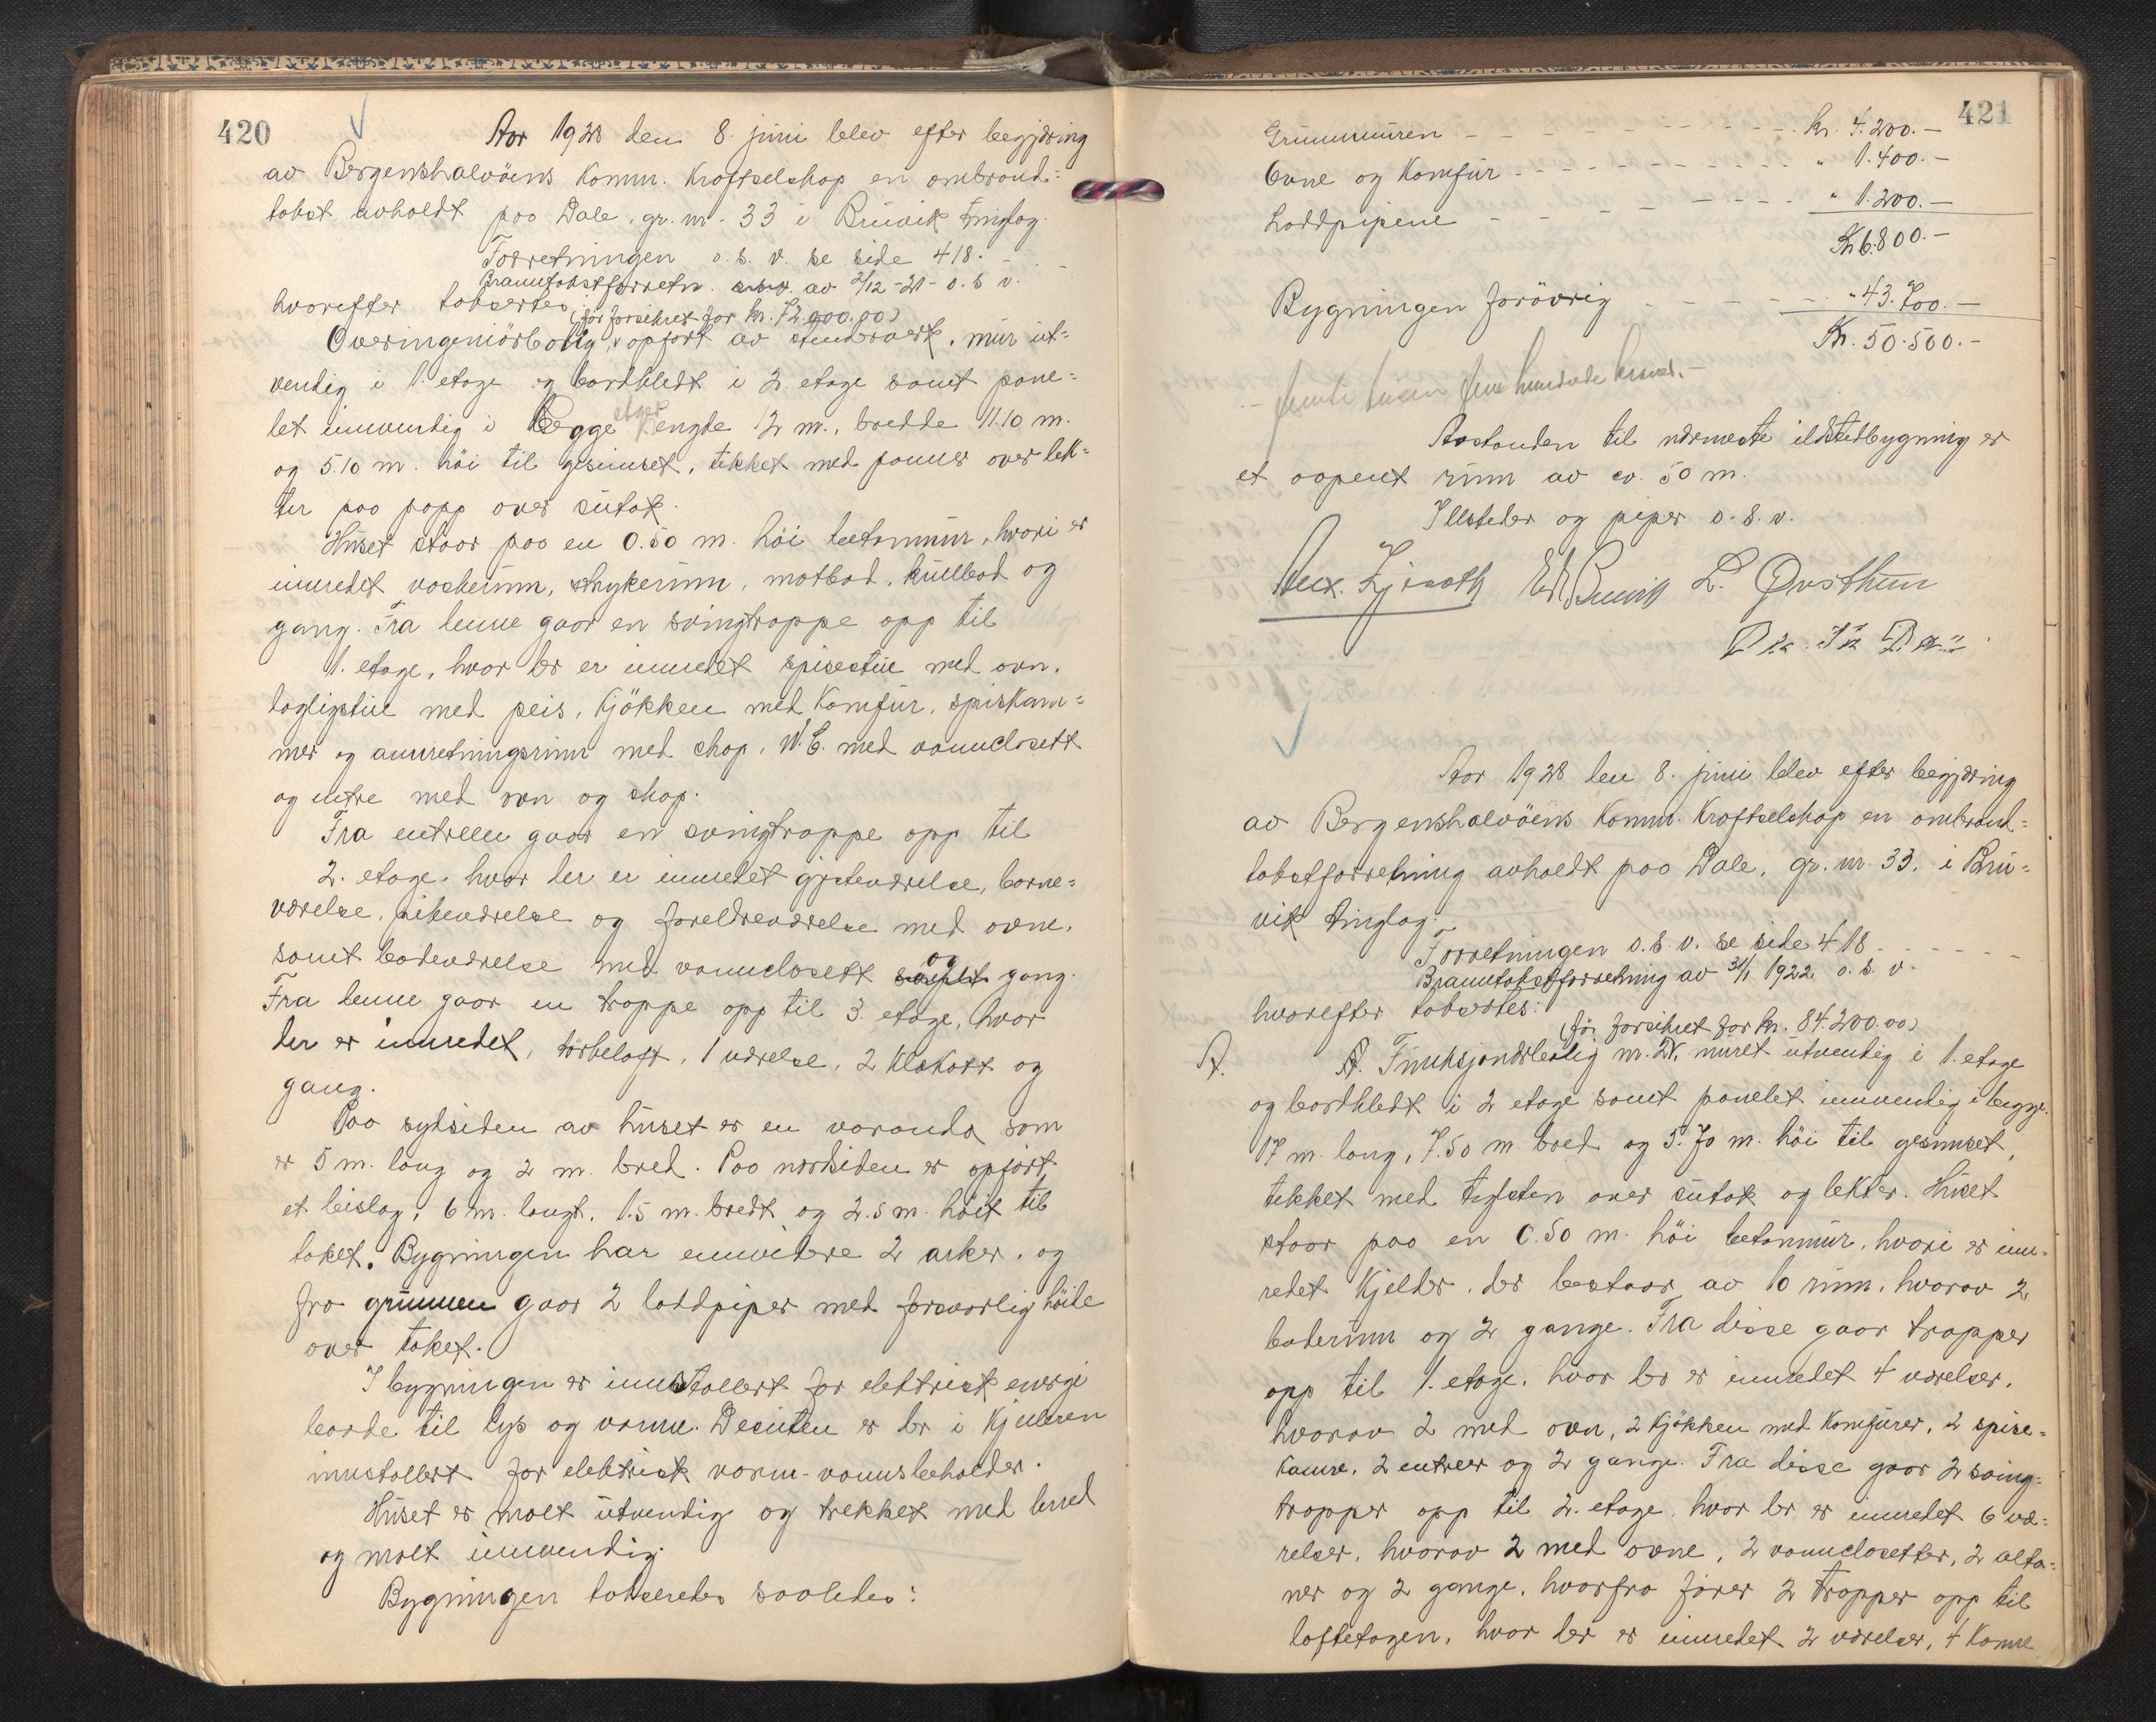 420
Aar 1928 den 8. juni blev efter begjæring
av Bergenshalvöens Komm. Kraftselskap en ombrand-
takst avholdt paa Dale, gr. nr. 33 i Bruvik tinglag.
Forretningen o.s.v. se side 418. - . -
Branntakstforretn. av 2/12-21 - o.s.v.
hvorefter takseredes:
(för forsikret for kr. 72.000.00)
Overingeniörbolig, opfört av stenderverk, mur ut-
vendig i 1. etage og bordkledt i 2. etage samt pane-
let innvendig i begge etger lengde 12 m., bredde 11.10 m.
og 5.10 m. höi til gesimset, tekket med panner over lek-
ter paa papp over sutak.
Huset staar paa en 0.50 m. höi betonmur, hvori er
innredet vaskerum, strykerum, matbod, kullbod og
gang. Fra denne gaar en svingtrappe opp til
1. etage, hvor der er innredet spisestue med ovn,
dagligstue med peis, Kjökken med Komfur, spiskam-
mer og annretningsrum med skap, W.C. med vannclosett
og entre med ovn og skap.
Fra entreen gaar en svingtrappe opp til
2. etage, hvor der er innredet gjesteværelse, barne-
værelse, pikeværelse og foreldreværelse med ovne,
samt badeværelse med vannclosett og gang.
Fra denne gaar en trappe opp til 3. etage, hvor
der er innredet, törkeloft, 1 værelse, 2 Klekott og
gang.
Paa sydsiden av huset er en varanda som
er 5 m. lang og 2 m. bred. Paa nordsiden er opfört
et bislag, 6 m. langt, 1.5 m. bredt og 2.5 m. höit til
taket. Bygningen har ennvidere 2 arker, og
fra grunnen gaar 2 loddpiper med forsvarlig höide
over taket.
I bygningen er innstallert for elektrisk energi
baade til lys og varme. Desuten er der i Kjelleren
innstallert for elektrisk varm-vannsbeholder.
Huset er malt utvendig og trekket med lerred
og malt innvendig.
Bygningen takseredes saaledes:
421
Grunnmuren - - - - - - - - - kr. 4.200.-
Ovne og Komfur - - - - - - - - " 1.400.-
Loddpipene - - - - - - - - " 1.200.-
Kr. 6.800.-
Bygningen forövrig - - - - - " 43.700.-
Kr. 50.500.-
- femti tusen fem hundrede kroner. -
Avstanden til nærmeste ildstedbygning er
et aapent rum av ca. 50 m.
Illsteder og piper o.s.v.
L. Øvsthun
Aar 1928 den 8. juni blev efter begjæring
av Bergenshalvöens Komm. Kraftselskap en ombrand-
takstforretning avholdt paa Dale, gr. nr. 33. i Bru-
vik tinglag.
Forretningen o.s.v. se side 418 - - - -
Branntakstforretning av 31/1 1922 o.s.v.
hvorefter taksertes:
(för forsikret for kr. 84.200.00)
A. A. Funksjonærbolig nr. IV, muret utvendig i 1. etage
og bordkledt i 2 etage samt panelet innvendig i begge.
17 m. lang, 7.50 m. bred og 5.70 m. höi til gesimset,
tekket med teglsten over sutak og lekter. Huset
staar paa en 0.50 m. höi betonmur, hvori er inn-
redet Kjelder, der bestaar av 10 rum, hvorav 2
baderum og 2 gange. Fra disse gaar trapper
opp til 1. etage, hvor der er innredet 4 værelser,
hvorav 2 med ovn, 2 Kjökken med Komfurer, 2 spise-
kamre, 2 entreer og 2 gange. Fra disse gaar 2 sving-
trapper opp til 2. etage, hvor der er innredet 6 væ-
relser, hvorav 2 med ovne, 2 vannclosetter, 2 alta-
ner og 2 gange, hvorfra förer 2 trapper opp til
loftetagen, hvor der er innredet 2 værelser, 4 Kamre